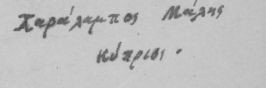 Χαράλαμπος Μάλης
Κύπριος.